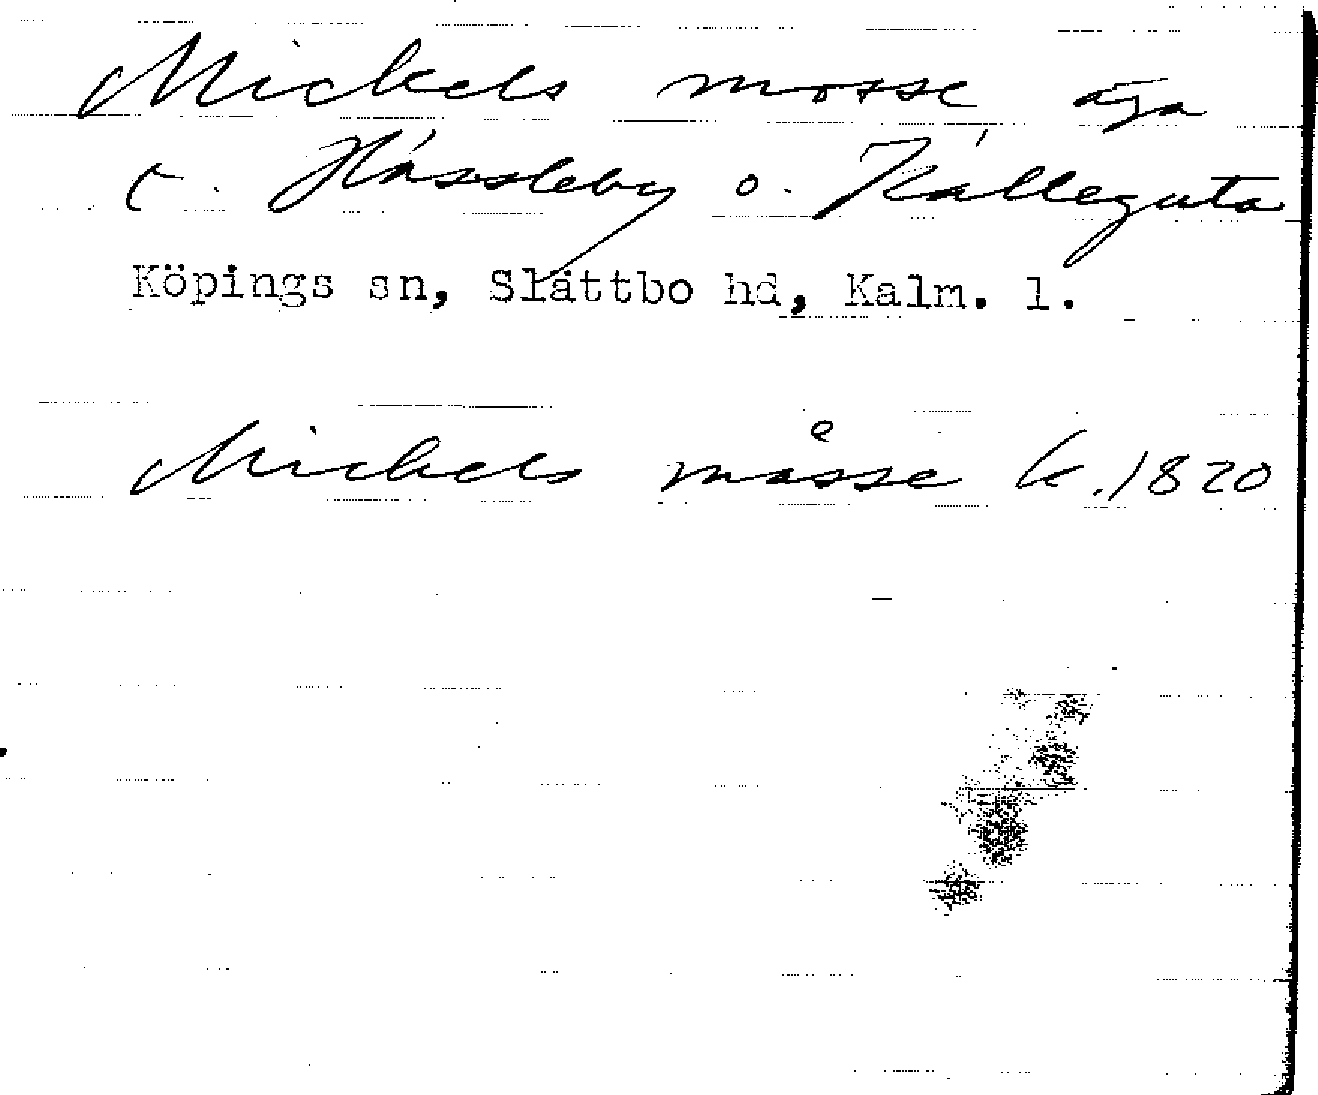 Mickels mosse äga
t. Hässleby o. Källeguta
Köpings sn, Slättbo hd, Kalm. l.
Mickels måsse k. 1820